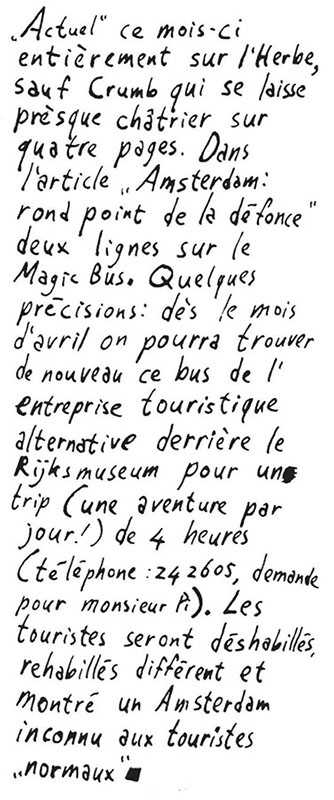 „Actuel" ce mois-ci
entièrement sur l'Herbe,
sauf Crumb qui se laisse
près que châtrier sur
quatre pages. Dans
l'article „Amsterdam:
rond point de la défonce"
deux lignes sur le
Magic Bus. Quelques
précisions: dès le mois
d'avril on pourra trouver
de nouveau ce bus de l'
entreprise touristique
alternative derrière le
Rijksmuseum pour un
trip (une aventure par
jour!) de 4 heures
(téléphone: 242605, demande
pour monsieur Pi). Les
touristes seront déshabillés,
rehabillés différent et
montré un Amsterdam
inconnu aux touristes
„normaux"